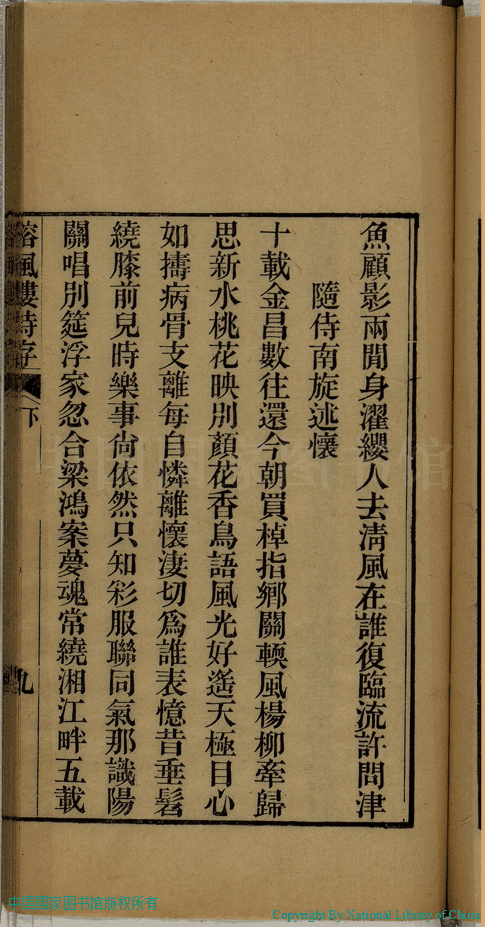 魚顧影兩閒身濯纓人去淸風在誰復臨流許問津
隨侍南旋述懷
十載金昌數往還今朝買棹指鄉關輭風楊柳牽歸
思新水桃花映別顏花香鳥語風光好遙天極目心
如擣病骨支離每自憐離懷淒切爲誰表憶昔垂髫
繞膝前兒時樂事尙依然只知彩服聯同氣那識陽
關唱別筵浮家忽合梁鴻案夢魂常繞湘江畔五載
風樓詩存 下 九
中国国家图书馆版权所有
Copyright By National Library of China